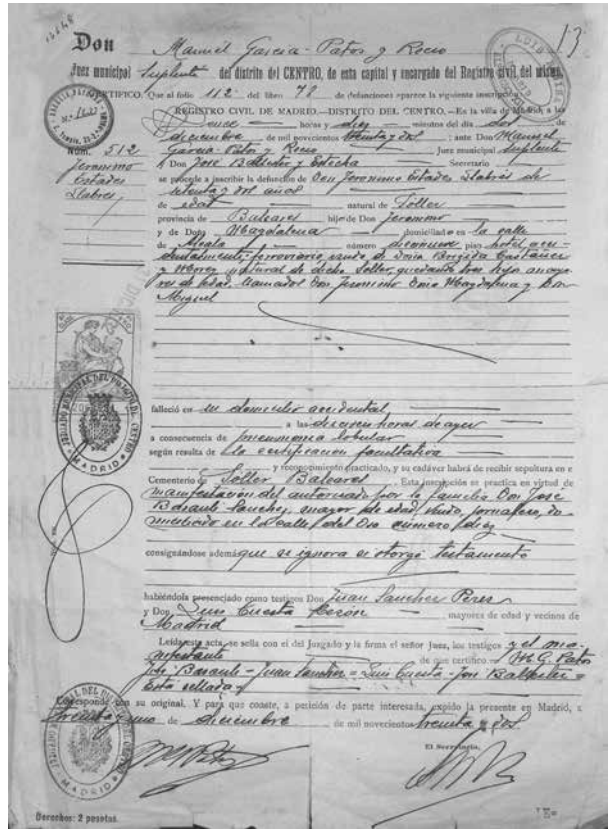 13
Don Manuel García-Patos y Recio
Juez municipal Suplente del distrito del CENTRO, de esta capital y encargado del Registro civil del mismo
CERTIFICO: Que al folio 112 del libro 78 de defunciones aparece la siguiente inscripción:
REGISTRO CIVIL DE MADRID.—DISTRITO DEL CENTRO.—En la villa de Madrid, a las
horas y diez minutos del día dos de
diciembre de mil novecientos treinta y dos; ante Don Manuel
García-Patos y Recio Juez municipal Suplente
y Don José Secretario
se procede a inscribir la defunción de Don Jerónimo Estades Llabrés de
setenta y dos años
de edad natural de Sóller
provincia de Baleares hijo de Don Jerónimo
y de Doña Magdalena domiciliado en la calle
de Alcalá número diecinueve piso hotel acci-
dentalmente, ferroviario, viudo de Doña Brígida Castañer
y natural de dicho Sóller, quedando tres hijos mayo-
res de edad, llamados Don Jerónimo Doña Magdalena y Don
Miguel
Núm. 512
Jerónimo
Estades
Llabrés
falleció en su domicilio accidental
a las horas de ayer
a consecuencia de pneumonia lobular
según resulta de la certificación facultativa
y reconocimiento practicado, y su cadáver habrá de recibir sepultura en e
Cementerio de Sóller Baleares. Esta inscripción se practica en virtud de
manifestación del autorizado por la familia Don José
Basante Sánchez, mayor de edad, viudo, jornalero, do-
miciliado en la calle del Oso número diez
consignándose además que se ignora si otorgó testamento
habiéndola presenciado como testigos Don Juan Sánchez Pérez
y Don Luis Cuesta Cerón, mayores de edad y vecinos de
Madrid
Leída esta acta, se sella con el del Juzgado y la firma el señor Juez, los testigos y el ma-
nifestante de que certifico = M. G. Patos
José Basante = Juan Sánchez = Luis Cuesta = José =
Está sellada
Corresponde con su original. Y para que conste, a petición de parte interesada, expido la presente en Madrid, a
treinta y uno de diciembre de mil novecientos treinta y dos
El Secretario,
JUZGADO MUNICIPAL DEL DISTRITO DEL CENTRO
MADRID
JUZGADO MUNICIPAL DEL DISTRITO DEL CENTRO
MADRID
Derechos: 2 pesetas.